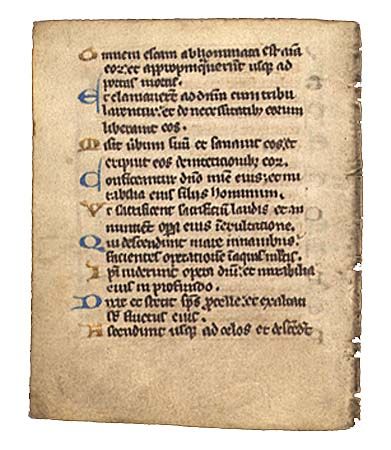 Omnem escam abhominata est aīa
eoꝝ et appropinq̄uerūt usqȝ ad
portas mortis.
Et clamauerūt ad dn̄m cum tribu
larentur: et de necessitatibȝ eorum
liberauit eos.
Misit ūbum suū et sanauit eos: et
eripuit eos de interitionibȝ eoꝝ.
Confiteantur dn̄o mīe eius: et mi
rabilia eius filijs hominum.
Ut sacrificent sacrificiū laudis et an
nuncient opa eius ī exultatione.
Qui descendunt mare in nauibus:
facientes operationē ī aquis multis.
Ipi uiderunt opera dn̄i: et mirabilia
eius in profundo.
Dixit et stetit sp̄s procelle: et exaltati
st̄ fluctus eius.
Ascendunt usqȝ ad celos et descēdt̄